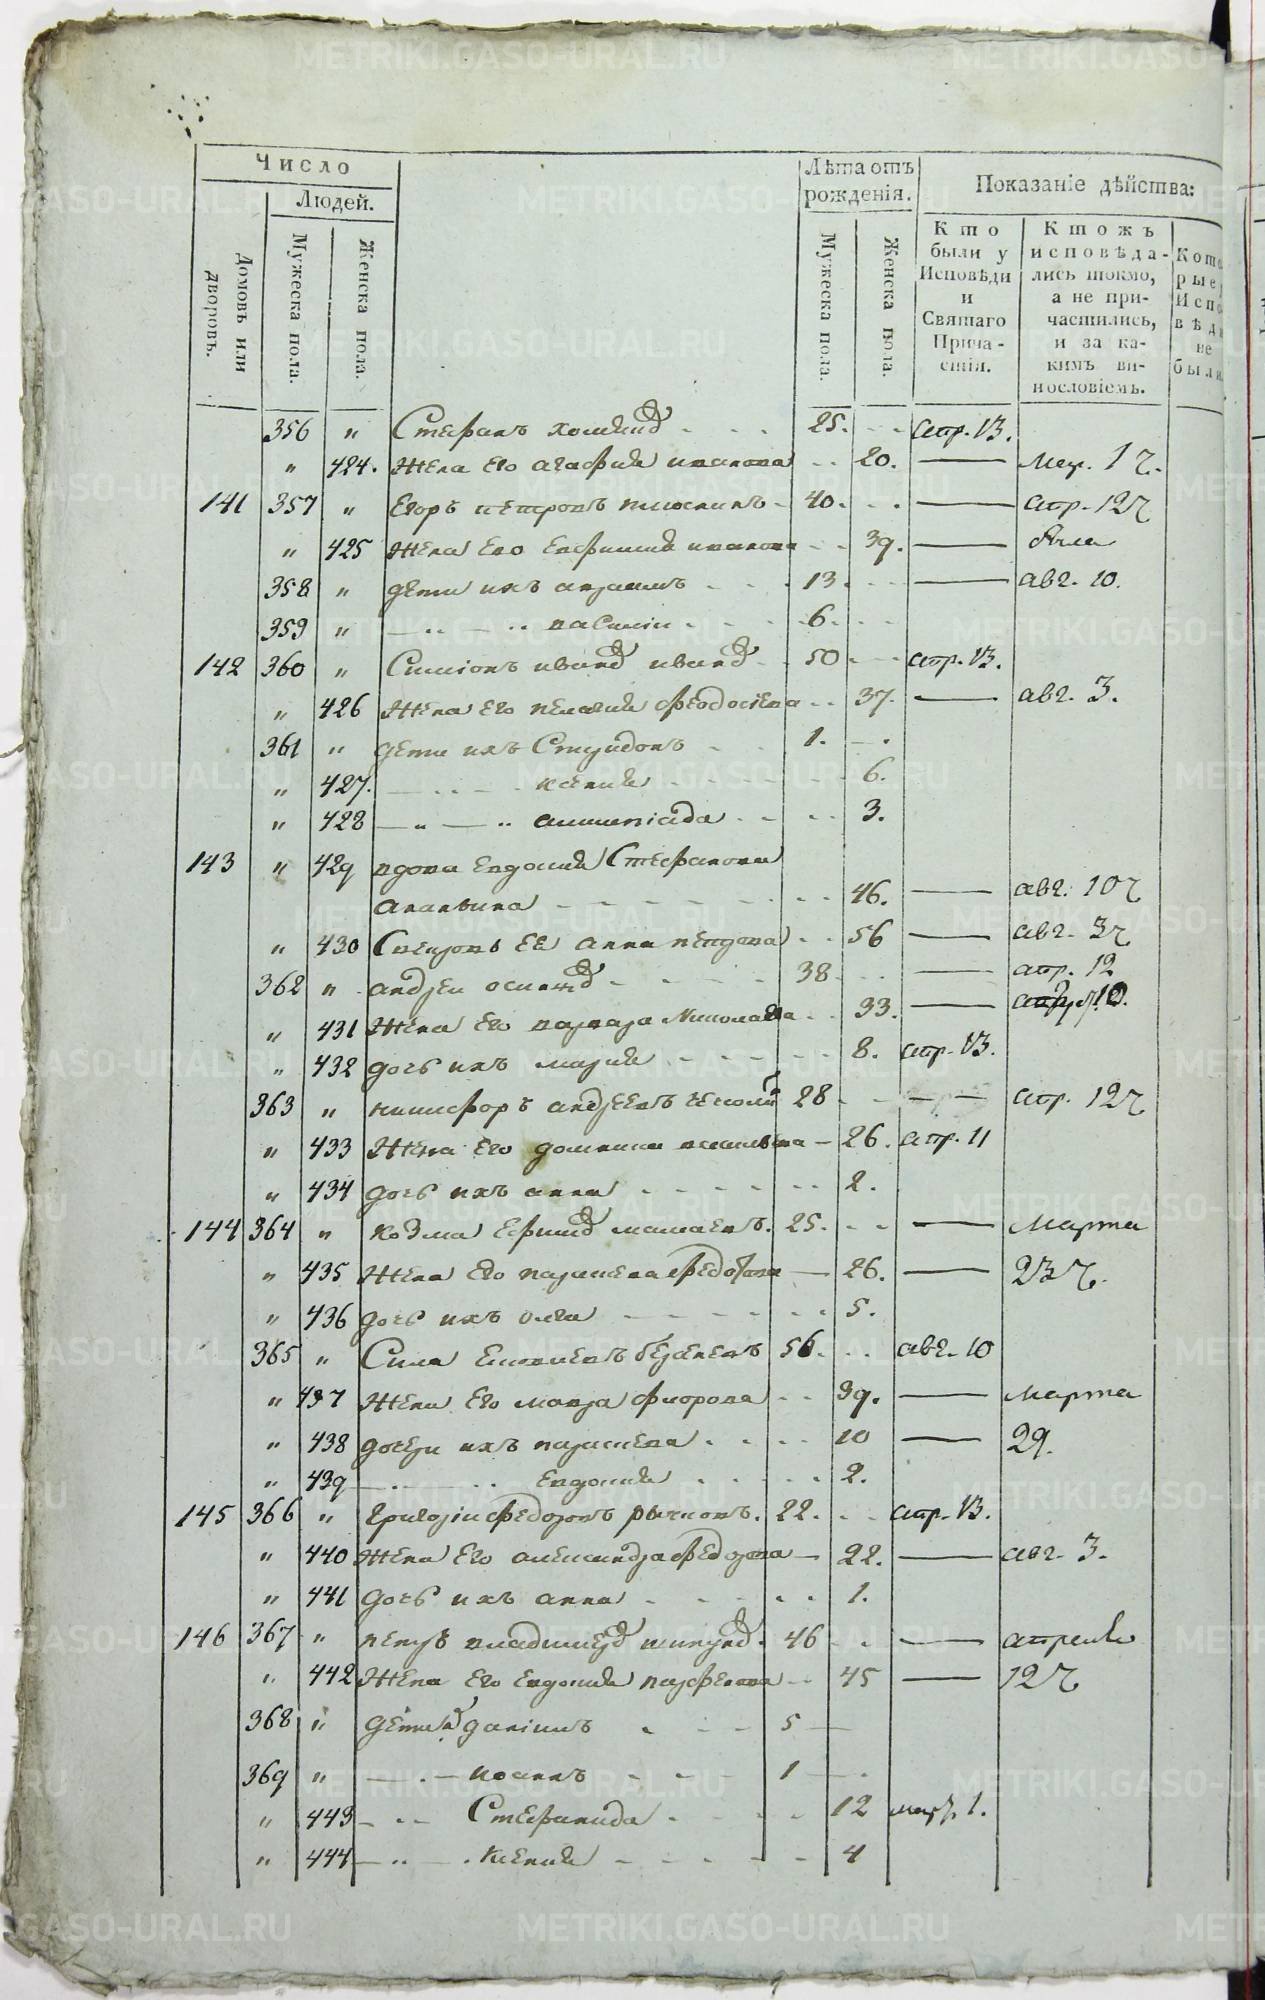 Число
Людей.
Домовъ или дворовъ.
Мужеска пола.
Женска пола.
Лѣта отъ рожденія.
Мужеска пола.
Женска пола.
Показаніе дѣйства:
Кто были у Исповѣди и Святаго Причастія.
Ктожъ исповѣдались токмо, а не причастились, и за какимъ винословіемъ.
Кото рые Исповѣди не были
356 " Стефанъ 25. апр. 13.
" 424. жена его агафия иванова 20. — мар. 1 ч.
141 357 " Егоръ петровъ 40. — апр. 12 ч
" 425 жена его евфимия иванова 39. — была
358 " дети ихъ 13. — авг. 10.
359 " василии 6.
142 360 " Симионъ ивановъ ивановъ 50 апр. 13.
" 426 жена его пелагия феодосиева 37. — авг. 3.
361 " дети ихъ Спиридонъ 1.
" 427. ксения 6.
" 428 3.
143 " 429 вдова евдокия Стефанова
ананьина 46. — авг. 10 ч
" 430 ее анна 56 — авг. 3 ч
362 " андреи 38 — апр. 12
" 431 жена его варвара Николаева 33. — 10.
" 432 дочь ихъ мария 8. апр. 13.
363 " никифоръ андреевъ 28 — апр. 12 ч
" 433 жена его домника 26. апр. 11
" 434 дочь ихъ анна 2.
144 364 " козма ефимовъ мамаевъ. 25. — марта
" 435 жена его параскева федотова 26. — 23 ч.
" 436 дочь ихъ олга 5.
365 " Сила 56. авг. 10
" 437 жена его мавра флорова 39. — марта
" 438 дочери ихъ параскева 10 — 29.
" 439 евдокия 2.
145 366 " григории федоровъ рычковъ. 22. апр. 13.
" 440 жена его александра федорова 22. — авг. 3.
" 441 дочь ихъ анна 1.
146 367 " петръ владимеровъ 46 — апреля
" 442 жена его евдокия парфенова 45 — 12 ч
368 " дети данiилъ 5
369 " иоаннъ 1
" 443 Стефанида 12 мар. 1.
" 444 ксения 4